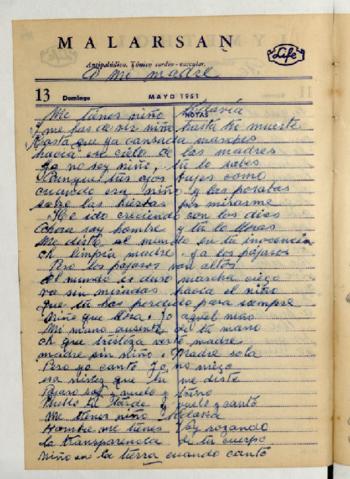 MALARSAN
Antipalúdico. Tónico cardio-vascular.
Life
A mi madre
13 Domingo MAYO 1951
NOTAS
Me tienes niño todavía
y me has de ver niño hasta tu muerte
Hasta que ya cansada marches
hacia el cielo de las madres
Ya no soy niño, tú lo sabes
Porque tus ojos
cuando era niño y los posabas
sobre las hierbas por mirarme
He ido creciendo con los días
Ahora soy hombre y tú lo lloras
Me diste al mundo en tu inocencia
oh limpia madre, a los pájaros
Pero los pájaros van altos
El mundo es duro
va sin miradas hacia el niño
que tú has perdido para siempre
Niño que llora. Yo aquel niño
Mi mano ausente de tu mano
oh que tristeza verte madre
madre sin niño. Madre sola
Pero yo canto. Yo no
esa niñez que tú me diste
Pájaro soy y vuelo y torno
vuelo y canto
Me tienes niño todavía
Hombre me tienes. Voy rozando
la transparencia de tu cuerpo
Niño en la tierra cuando canto